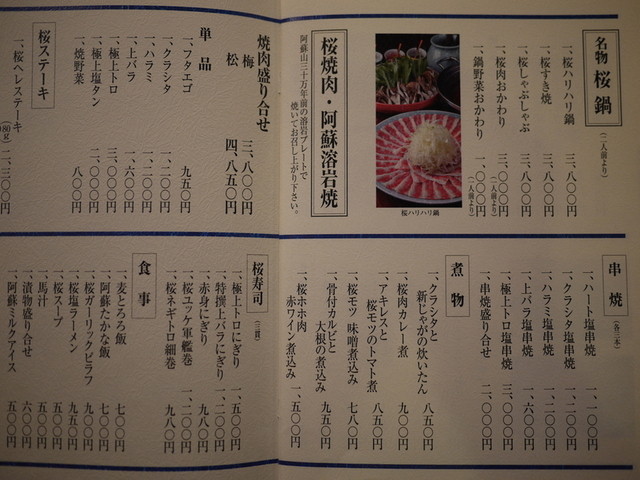 名物 桜鍋
(二人前より)
一、桜ハリハリ鍋 三、八〇〇円
一、桜すき焼 三、八〇〇円
一、桜しゃぶしゃぶ 三、八〇〇円
一、桜肉おかわり 三、〇〇〇円
(一人前より)
一、鍋野菜おかわり 一、〇〇〇円
(一人前より)
桜ハリハリ鍋
桜焼肉・阿蘇溶岩焼
阿蘇山三十万年前の溶岩プレートで
焼いてお召し上がり下さい。
焼肉盛り合せ
梅 三、八〇〇円
松 四、八五〇円
単品
一、フタエゴ 九五〇円
一、クラシタ 一、二〇〇円
一、ハラミ 一、二〇〇円
一、上バラ 一、六〇〇円
一、極上トロ 三、〇〇〇円
一、極上塩タン 二、〇〇〇円
一、焼野菜 八〇〇円
桜ステーキ
一、桜ヘレステーキ
二、三〇〇円
串焼
(各二本)
一、ハート塩串焼 一、一〇〇円
一、クラシタ塩串焼 一、二〇〇円
一、ハラミ塩串焼 一、二〇〇円
一、上バラ塩串焼 一、六〇〇円
一、極上トロ塩串焼 三、〇〇〇円
一、串焼盛り合せ 二、〇〇〇円
煮物
一、クラシタと
新じゃがの炊いたん 八五〇円
一、桜肉カレー煮 九〇〇円
一、アキレスと
桜モツのトマト煮 八五〇円
一、桜モツ 味噌煮込み 七八〇円
一、骨付カルビと
大根の煮込み 九五〇円
一、桜ホホ肉
赤ワイン煮込み 一、五〇〇円
桜寿司
(三貫)
一、極上トロにぎり 一、五〇〇円
一、特撰上バラにぎり 一、二〇〇円
一、赤身にぎり 九八〇円
一、桜ユッケ軍艦巻 一、二〇〇円
一、桜ネギトロ細巻 九八〇円
食事
一、麦とろろ飯 七〇〇円
一、阿蘇たかな飯 七〇〇円
一、桜ガーリックピラフ 九〇〇円
一、桜塩ラーメン 九五〇円
一、桜スープ 五〇〇円
一、馬汁 五〇〇円
一、漬物盛り合せ 六〇〇円
一、阿蘇ミルクアイス 五〇〇円